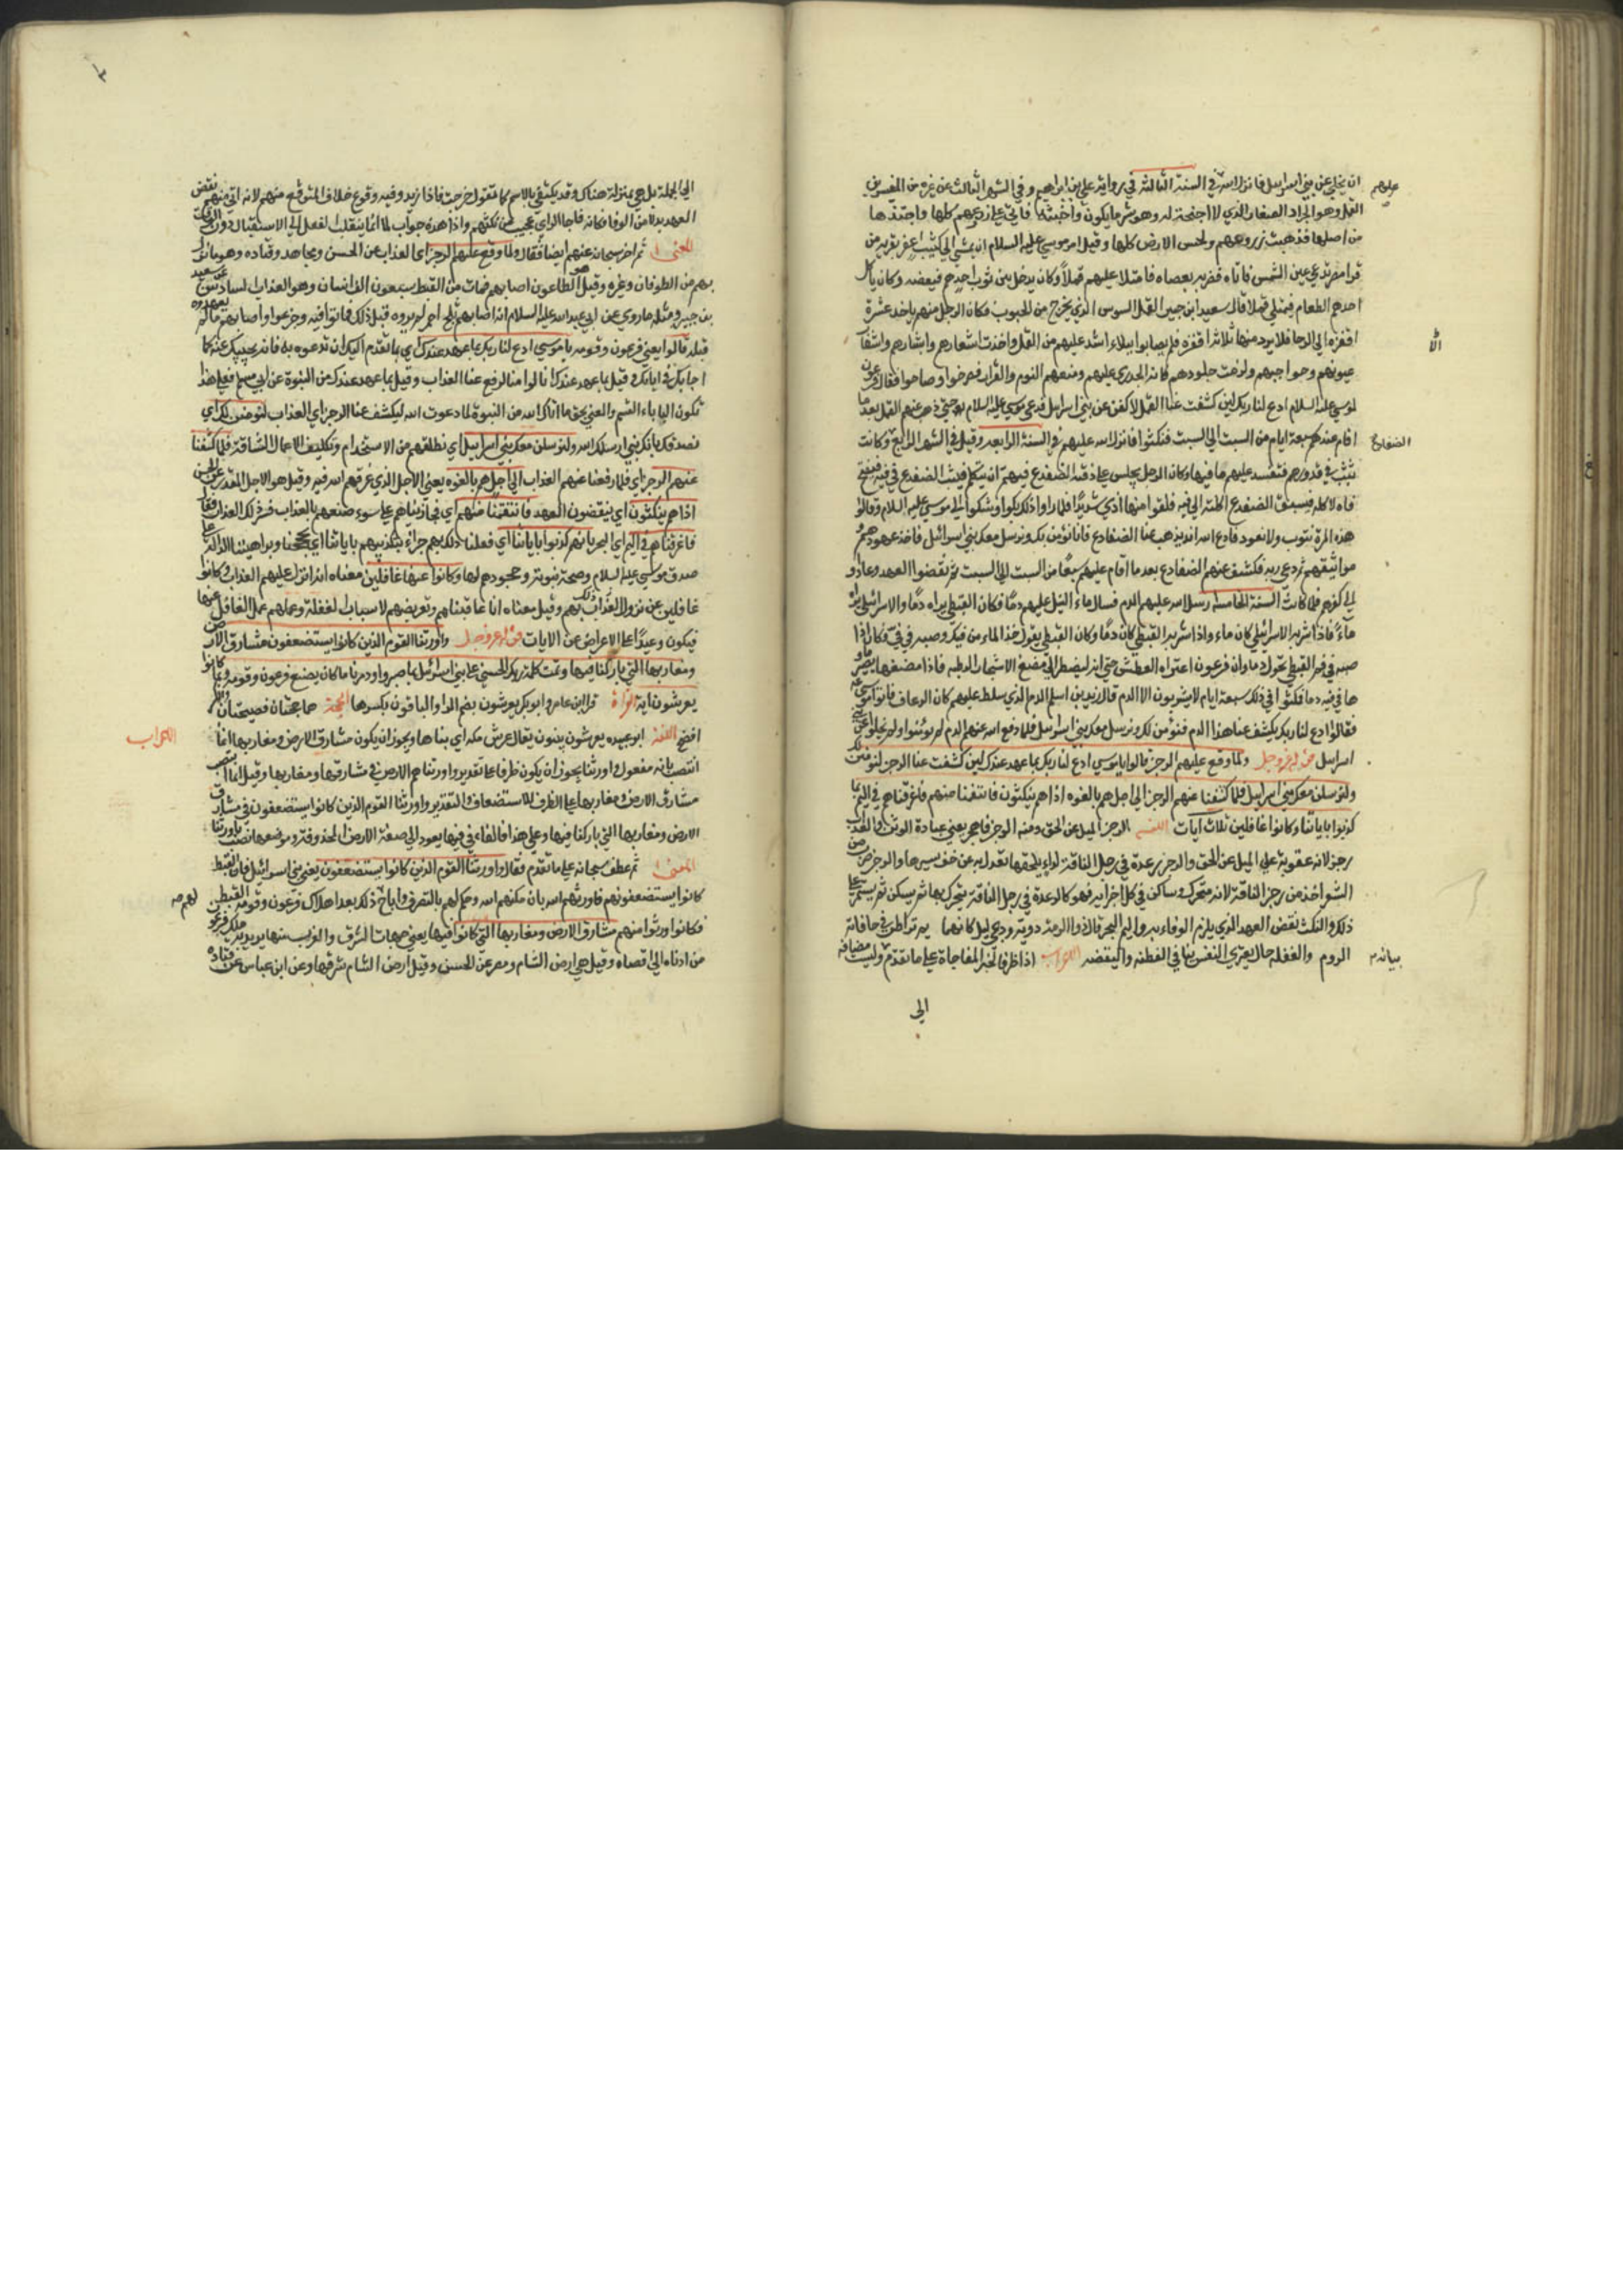 ان يخلي عن بني اسرايل فانزل الله في السنة الثالثة في رواية علي بن ابراهيم وفي الشهر الثالث عن غيره من المفسرين
عليهم
القمل وهو الجراد الصغار الذي لا اجنحة له وهو شر ما يكون واخبثه فاتى على زروعهم كلها واجتثها
من اصلها فذهبت زروعهم ولحس الارض كلها وقيل امر موسى عليه السلام ان يمشي الى كثيب اعفر بقرية من
قرا مصر تدعي عين الشمس فاتاه فضربه بعصاه فانثال عليهم قملاً وكان يدخل بين ثوب احدهم فيعضه وكان ياكل
احدهم الطعام فيمتلي قملا قال سعيد ابن جبير القمل السوس الذي يخرج من الحبوب فكان الرجل منهم ياخد عشرة
اقفزه الى الرحا فلا يرد منها ثلاثة اقفزه فلم يصابوا ببلاء اشد عليهم من القمل واخذت اشعارهم وابشارهم واشفار
عيونهم وحواجبهم ولزمت جلودهم كانه الجدري عليهم ومنعهم النوم والقرار فصرخوا وصاحوا فقال فرعون
لموسى عليه السلام ادع لنا ربك لئن كشفت عنا القمل لاكفن عن بني اسرايل فدعى موسى عليه السلام ربه حتى ذهب عنهم القمل بعد ما
اقام عندهم سبعة ايام من السبت الى السبت فنكثوا فانزل الله عليهم في السنة الرابعه وقيل في الشهر الرابع وكانت
الضفادع
تثب في قدورهم فتفسد عليهم ما فيها وكان الرجل يجلس على ذقنه الضفدع فيهم ان يتكلم فيثب الضفدع في فيه فيفتح
فاه لاكله فيسبق الضفدع اكلته الى فيه فلقوا منها اذي شديدا فلما راوا ذلك بكوا وشكوا الى موسى عليه السلام وقالوا
هذه المرة نتوب ولا نعود فادع الله ان يذهب عنا الضفادع فانا نؤمن بك ونرسل معك بني اسرائل فاخذ عهودهم
مواثيقهم ثم دعى ربه فكشف عنهم الضفادع بعد ما اقام عليهم سبعًا من السبت الى السبت ثم نقضوا العهد وعادو
الى كفرهم فلما كانت السنة الخامسة ارسل الله عليهم الدم فسال ماء النيل عليهم دمًا فكان القبطي يراه دمًا والاسرائيلي يراه
ماءً فاذا شربه الاسرائيلي كان ماء واذا شربه القبطي كان دمًا وكان القبطي يقول خذ الماء من فيك وصبه في فيّ فكان اذا
صبه في فم القبطي تحول دما وان فرعون اعتراه العطش حتى انه ليضطر الى مضغ الاشجار الرطبه فاذا مضغها يصير ماو
ها في فيه دما فمكثوا في ذلك سبعة ايام لا يشربون الا الدم قال زيد بن اسلم الدم الذي سلط عليهم كان الرعاف فاتوا موسى
فقالوا ادع لنا ربك يكشف عنا هذا الدم فنؤمن لك ونرسل معك بني اسرائيل فلما دفع الله عنهم الدم لم يؤمنوا ولم يخلوا عن بني
اسرايل قوله عز وجل ولما وقع عليهم الرجز قالوا يا موسى ادع لنا ربك بما عهد عندك لئن كشفت عنا الرجز لنؤمنن لك
ولنرسلن معك بني اسرائيل فلما كشفنا عنهم الرجز الى اجل هم بالغوه اذا هم ينكثون فانتقمنا منهم فاغرقناهم في اليم بانهم
كذبوا باياتنا وكانوا غافلين ثلاث آيات اللغة الرجز الميل عن الحق ومنه الرجز فاهجر يعني عبادة الوثن والعذاب
رجز لانه عقوبة على الميل عن الحق والرجز رعدة في رجل الناقة لداء يلحقها تعدل به عن حق سيرها والرجز ضرب من
الشعر اخذ من رجز الناقة لانه متحرك وساكن في كل اجزايه فهو كالرعدة في رجل الناقة يتحرك بها ثم يسكن ثم يستمر على
ذلك والنكث نقض العهد الذي يلزم الوفاء به واليم البحر قال ذو الرمة دوية ودجى ليل كانهما يم تراطن في حافاته
الروم والغفله حال يعتري النفس ينافي الفطنه واليقضه الاعراب اذا ظرف لخبر المفاجاة على ما تقدم وليست مضافه
بيانه
الى
الى الجملة بل هي بمنزلة هناك وقد يكتفي بالاسم كما تقول خرجت فاذا زيد وفيه وقوع خلاف المتوقع منهم لانه اتى منهم نقض
العهد بدلا من الوفا فكانه فاجا الراي عجيب من نكثهم واذا هذه جواب لما
المعنى ثم اخبر سبحانه عنهم ايضا فقال ولما وقع عليهم الرجز اي العذاب عن الحسن ومجاهد وقتاده وهو ما نزل
بهم من الطوفان وغيره وقيل هو الطاعون اصابهم فمات من القبط سبعون الف انسان وهو العذاب السادس عن سعيد
بن جبير ومثله ما روي عن ابي عبد الله عليه السلام انه اصابهم ثلج احمر لم يروه قبل ذلك فماتوا فيه وجزعوا واصابهم ما لم يعهدوه
قبله قالوا يعني فرعون وقومه يا موسى ادع لنا ربك بما عهد عندك اي بما تقدم اليك ان تدعوه به فانه يجيبك عنه كما
اجابك في اياتك وقيل بما عهد عندك انا لو امنا لرفع عنا العذاب وقيل بما عهد عندك من النبوة عن ابي مسلم فعلى هذا
تكون الباء باء القسم والمعني بحق ما اتاك الله من النبوة لما دعوت الله ليكشف عنا الرجز اي العذاب لنؤمنن لك اي
نصدقك بانك نبي ارسلك الله ولنرسلن معك بني اسرايل اي نطلقهم من الاستخدام وتكليف الاعمال الشاقة فلما كشفنا
عنهم الرجز اي فلما رفعنا عنهم العذاب الى اجل هم بالغوه يعني الاجل الذي غرقهم الله فيه وقيل هو الاجل المقدر عن الحسن
اذا هم ينكثون اي ينقضون العهد فانتقمنا منهم اي فجازيناهم على سوء صنعهم بالعذاب
فاغرقناهم في اليم اي البحر بانهم كذبوا باياتنا اي فعلنا ذلك بهم جزاء بتكذيبهم باياتنا اي بحججنا وبراهيننا الدالة على
صدق موسى عليه السلام وصحة نبوته وجحودهم لها وكانوا عنها غافلين معناه انه انزل عليهم العذاب وكانوا
غافلين عن نزول العذاب بهم وقيل معناه انا عاقبناهم وتعريضهم لاسباب الغفلة وعملهم عمل الغافل عنها
فيكون وعيدًا على الاعراض عن الايات قوله عز وجل واورثنا القوم الذين كانوا يستضعفون مشارق الارض
ومغاربها التي باركنا فيها وتمت كلمة ربك الحسنى على بني اسرائل بما صبروا ودمرنا ما كان يصنع فرعون وقومه وما كانوا
يعرشون اية القراة قرا ابن عامر وابو بكر يعرشون بضم الرا والباقون بكسرها الحجة هما لغتان فصيحتان والكسر
افصح اللغة ابو عبيده يعرشون يبنون يقال عرش مكه اي بناها ويجوز ان يكون مشارق الارض ومغاربها انما
الاعراب
انتصب بانه مفعول اورثنا يجوز ان يكون ظرفا على تقدير واورثناهم الارض في مشارقها ومغاربها وقيل انما انتصب
مشارق الارض ومغاربها على الظرف للاستضعاف والتقدير واورثنا القوم الذين كانوا يستضعفون في مشارق
الارض ومغاربها التي باركنا فيها وعلى هذا فالهاء في فيها يعود الى صفة الارض المحذوفة وموضعها نصب باورثنا
المعنى ثم عطف سبحانه على ما تقدم فقال واورثنا القوم الذين كانوا يستضعفون يعني بني اسرائيل فان القبط
كانوا يستضعفونهم فاورثهم الله بان مكنهم الله وحكم لهم بالتصرف واباح ذلك بعد اهلاك فرعون وقومه القبط
لهم صح
فكانوا ورثوا منهم مشارق الارض ومغاربها التي كانوا فيها يعني جهات الشرق والغرب منها يريد به ملك فرعون
من ادناه الى اقصاه وقيل هي ارض الشام ومصر عن الحسن وقيل ارض الشام شرقها وغربها عن قتاده